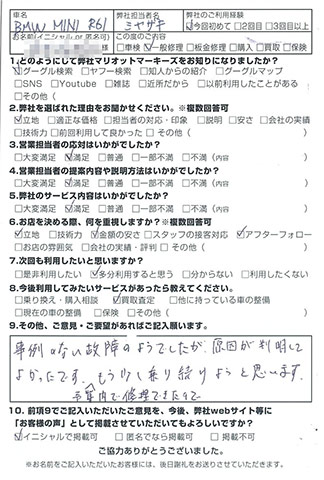 車名 弊社担当者名 弊社のご利用経験
BMW MINI R61 ミヤザキ ☑今回初めて □2回目 □3回目以上
お名前(イニシャル or 匿名可) この度のご用命
□車検 ☑一般修理 □板金修理 □購入 □買取 □保険
1.どのようにして弊社マリオットマーキーズをお知りになりましたか?
☑グーグル検索 □ヤフー検索 □知人からの紹介 □グーグルマップ
□SNS □Youtube □雑誌 □近所だから □以前利用したことがある
□その他( )
2.弊社を選ばれた理由をお聞かせください。※複数回答可
☑立地 □適正な価格 □担当者の対応・印象 □説明 □安さ □会社の実績
□技術力 □前回利用して良かった □その他( )
3.営業担当者の応対はいかがでしたか?
□大変満足 ☑満足 □普通 □一部不満 □不満(内容 )
4.営業担当者の提案内容や説明方法はいかがでしたか?
□大変満足 ☑満足 □普通 □一部不満 □不満(内容 )
5.弊社のサービス内容はいかがでしたか?
□大変満足 ☑満足 □普通 □一部不満 □不満(内容 )
6.お店を決める際、何を重視しますか?※複数回答可
☑立地 □技術力 ☑金額の安さ □スタッフの接客対応 ☑アフターフォロー
□お店の雰囲気 □会社の実績・評判 □その他( )
7.次回も利用したいと思いますか?
□是非利用したい ☑多分利用すると思う □分からない □利用したくない
8.今後利用してみたいサービスがあったら教えてください。
□乗り換え・購入相談 ☑買取査定 □他に持っている車の整備
□現在の車の整備 □保険 □その他( )
9.その他、ご意見・ご要望があればご記入願います。
事例のない故障のようでしたが、原因が判明して
よかったです。もう少し乗り続けようと思います。
予算内で修理できたので
10.前項9でご記入いただいたご意見を、今後、弊社webサイト等に
「お客様の声」として掲載させていただいてもよろしいですか?
☑イニシャルで掲載可 □匿名でなら掲載可 □掲載不可
ご協力ありがとうございました。
※お名前をご記入いただいたお客様には、後日謝礼をお送りさせていただきます。